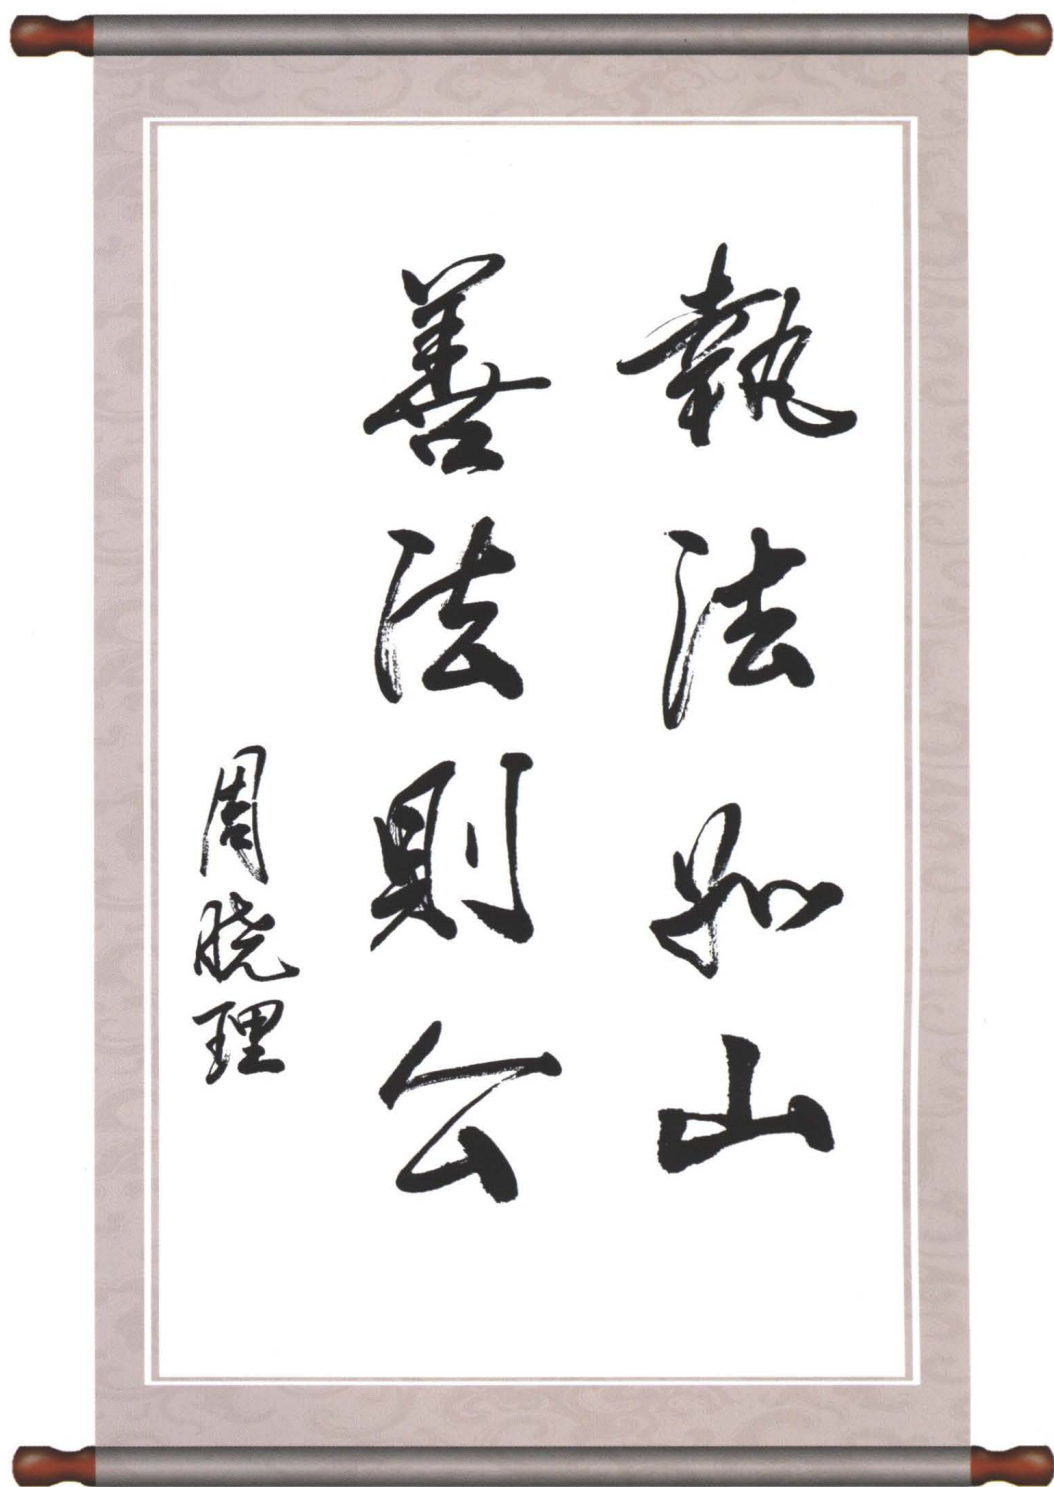 執法如山
善法則公
周晓理